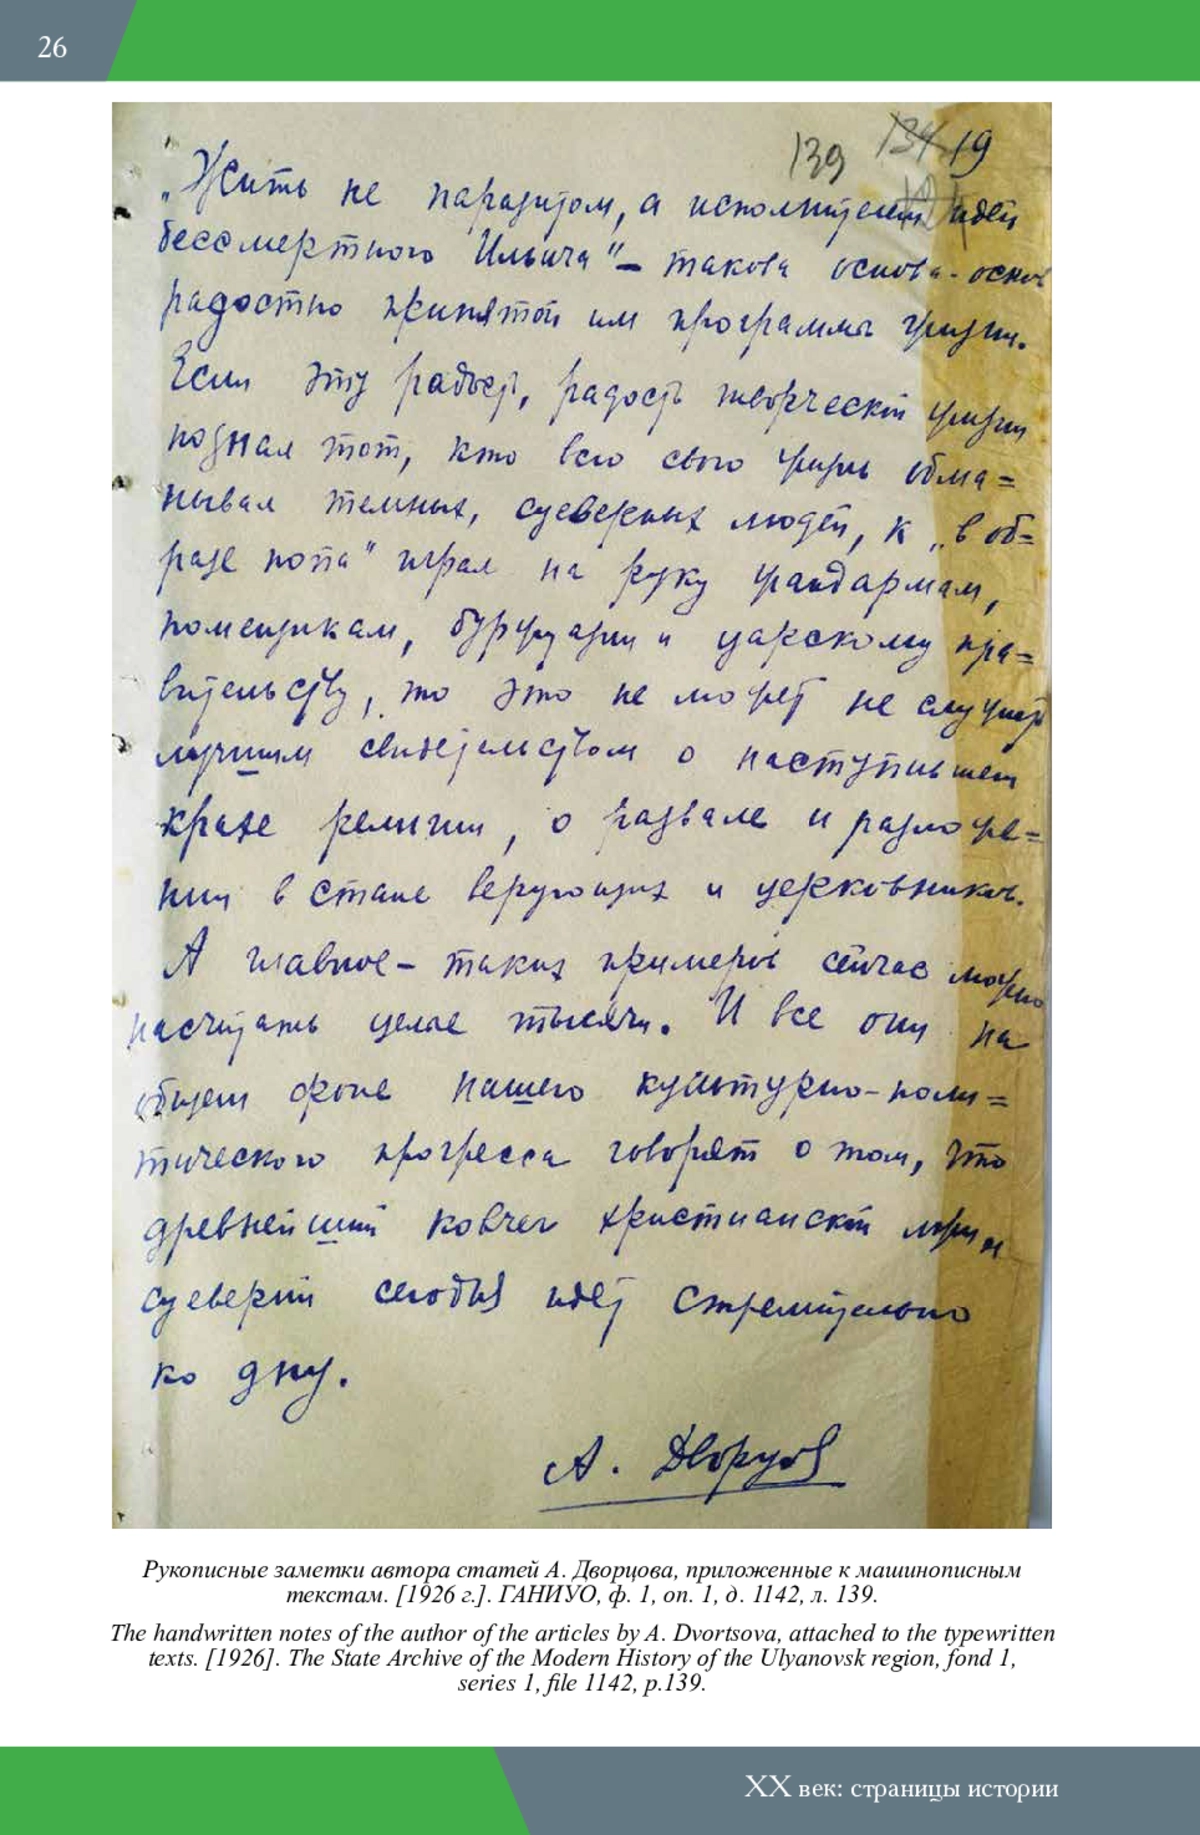 26
139 134 19
„Жить не паразитом, а исполнителем идей
бессмертного Ильича" – такова основа-основ
радостно принятой им программы жизни.
Если эту радость, радость творческой жизни
познал тот, кто всю свою жизнь обма=
нывал темных, суеверных людей, к „в об=
разе попа" играл на руку жандармам,
помещикам, буржуазии и царскому пра=
вительству, то это не может не служить
лучшим свидетельством о наступившем
крахе религии, о развале и разложе=
нии в стане верующих и церковников.
А главное – таких примеров сейчас можно
насчитать целые тысячи. И все они на
общем фоне нашего культурно-поли=
тического прогресса говорят о том, что
древнейший ковчег христианской лжи и
суеверий сегодня идет стремительно
ко дну.
А. Дворцов
Рукописные заметки автора статей А. Дворцова, приложенные к машинописным
текстам. [1926 г.]. ГАНИУО, ф. 1, оп. 1, д. 1142, л. 139.
The handwritten notes of the author of the articles by A. Dvortsova, attached to the typewritten
texts. [1926]. The State Archive of the Modern History of the Ulyanovsk region, fond 1,
series 1, file 1142, p.139.
XX век: страницы истории